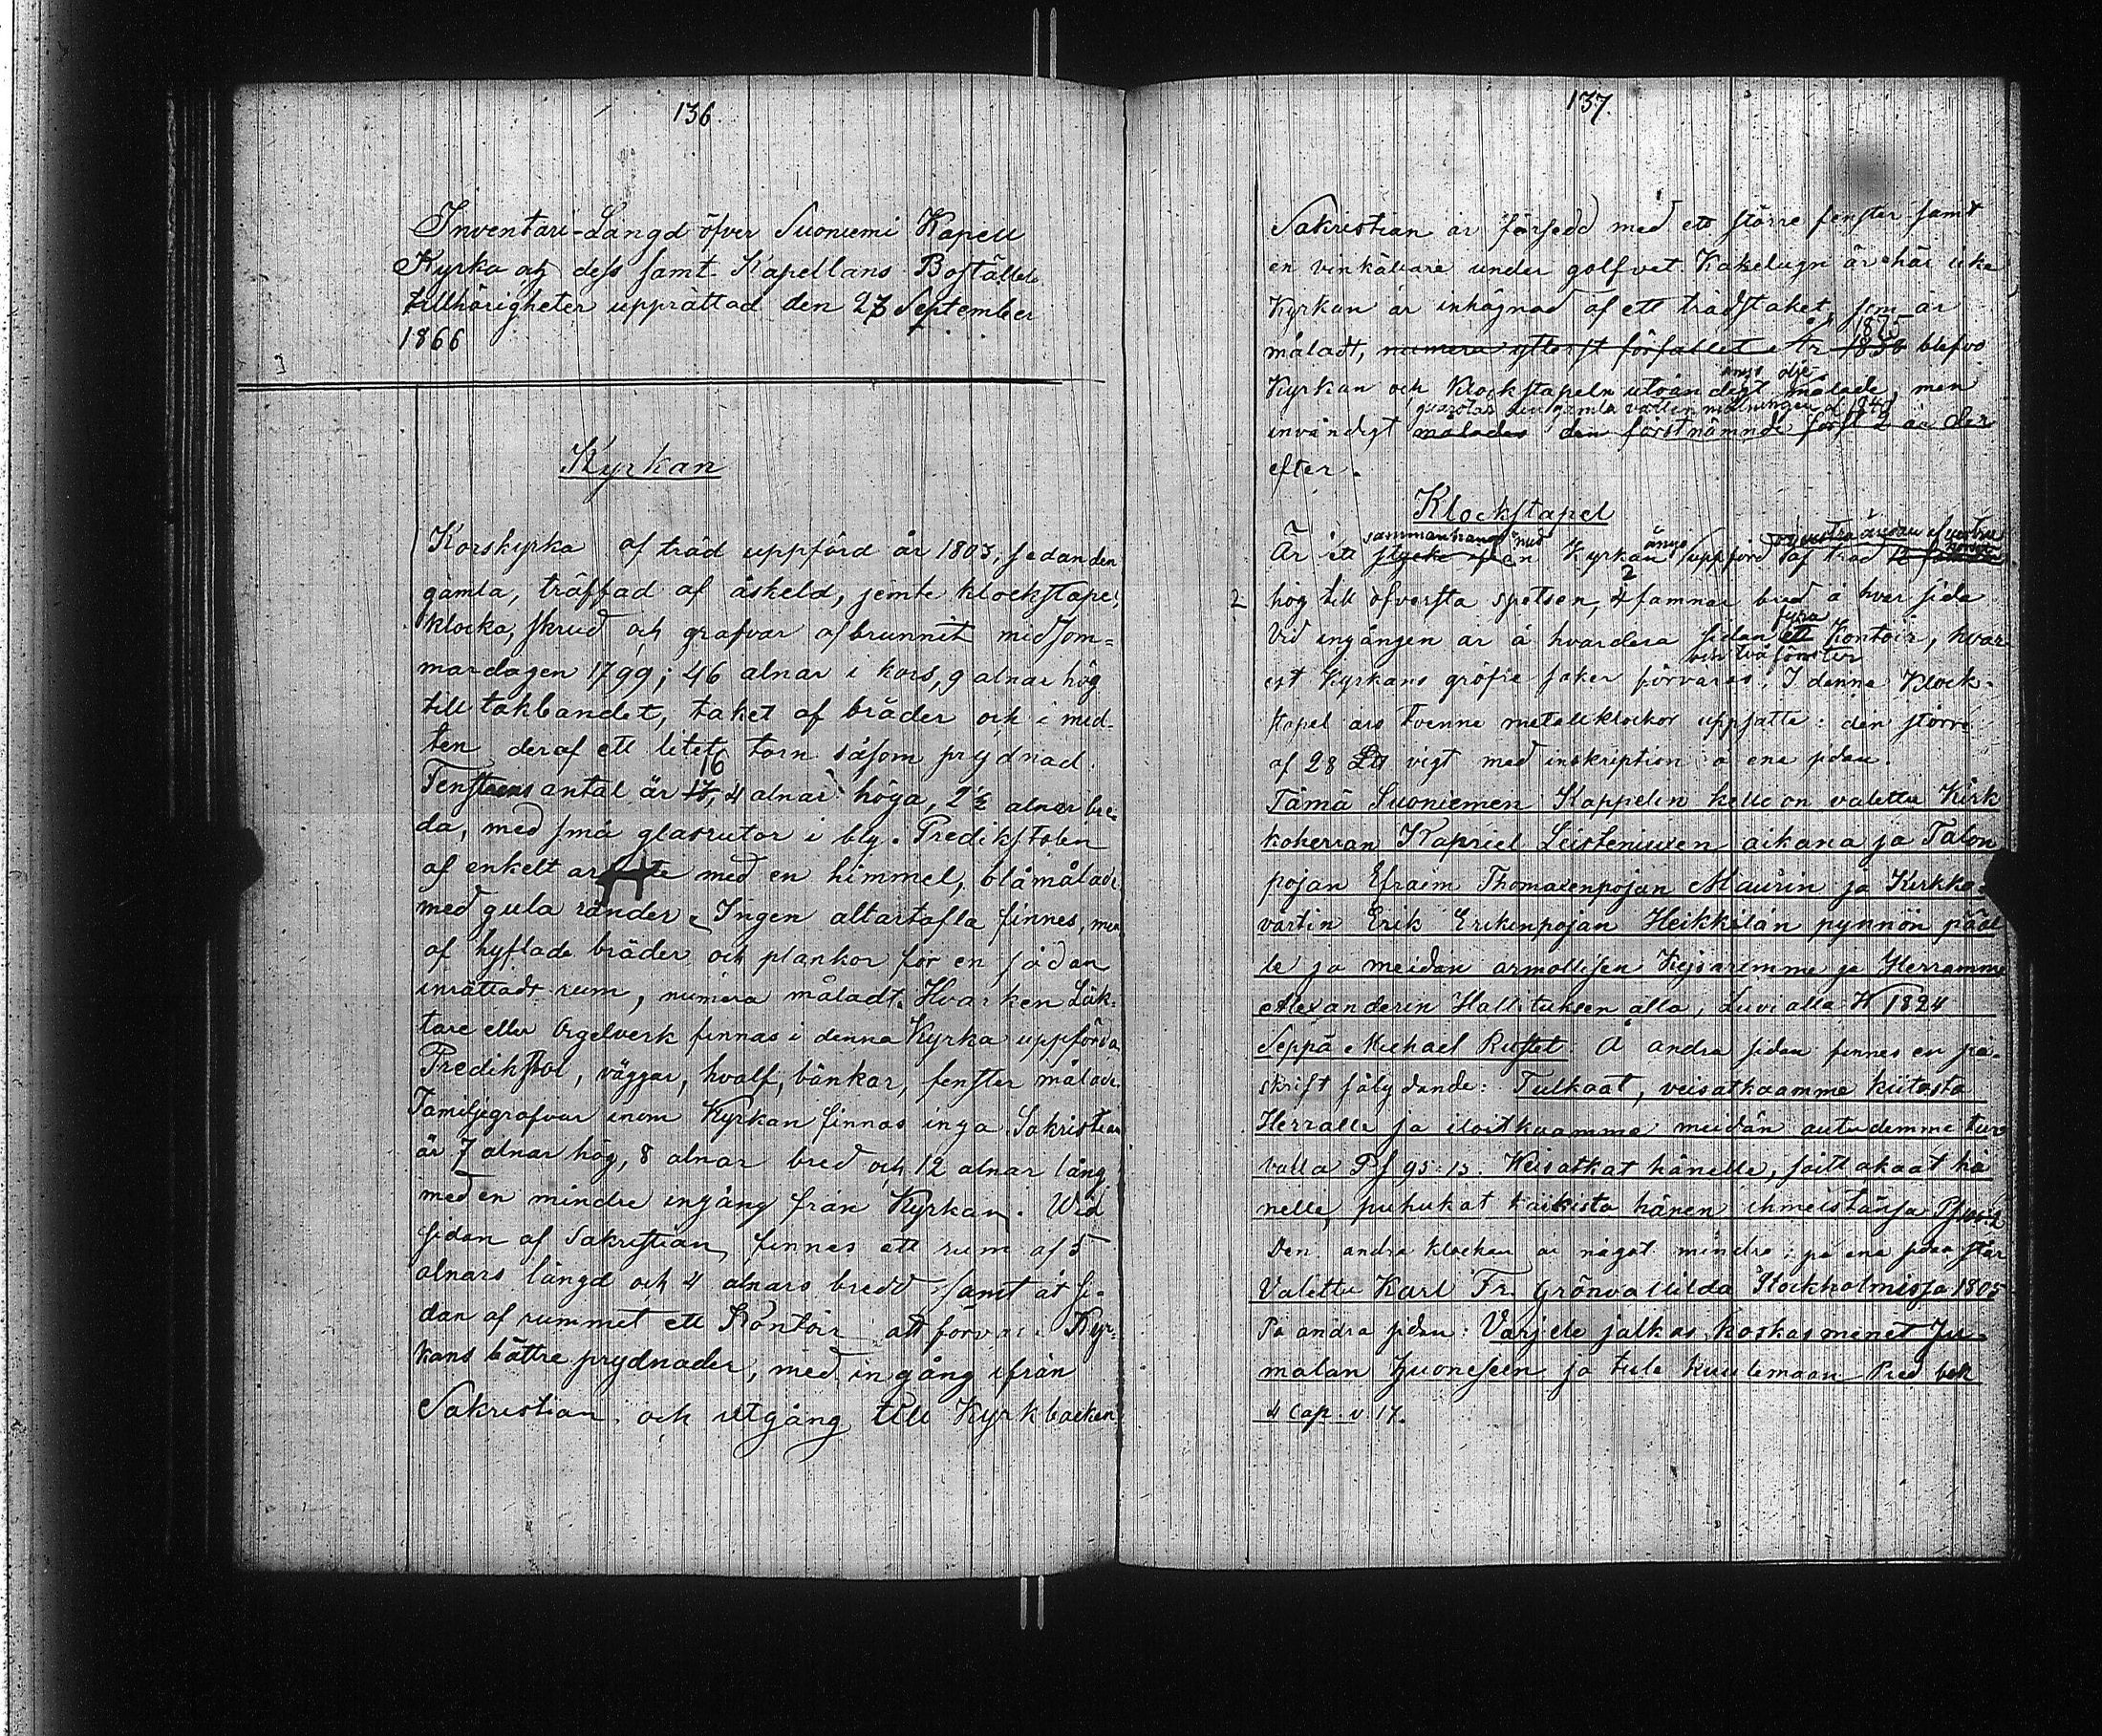 136.
Inventarii-Längd öfver Suoniemi Kapell
Kyrka och dess samt Kapellans Boställets
tillhörigheter upprättad den 27 September
1866
Kyrkan
Korskyrka af träd uppförd år 1803, sedan den
gamla, träffad af åskeld, jemte klockstapel,
klocka, skrud och grafvar afbrunnit midsom=
mardagen 1799; 46 alnar i kors, 9 alnar hög
till takbandet, taket af bräder och i mid-
ten deraf ett litet torn såsom prydnad.
16
Fenstrens antal är 17, 4 alnar höga, 2½ alnar bre-
da, med små glasrutor i bly. Predikstolen
af enkelt med en himmel, blåmålad
med gula ränder. Ingen altartafla finnes, men
af hyflade bräder och plankor för en sådan
inrättadt rum, numera måladt. Hvarken Läk-
tare eller Orgelverk finnas i denna Kyrka uppförda
Predikstol, väggar, hvalf, bänkar, fenster målade.
Familjegrafvar inom Kyrkan finnas inga. Sakristian
är 7 alnar hög, 8 alnar bred och 12 alnar lång
med en mindre ingång från Kyrkan. Wid
sidan af Sakristian finnes ett rum af 5
alnars längd och 4 alnars bredd samt åt si-
dan af rummet ett Kontoir att förvara Kyr-
kans bättre prydnader, med ingång ifrån
Sakristian, och utgång till Kyrkbacken
137.
Sakristian är försedd med ett större fenster samt
en vinkällare under golfvet. Kakelugn är här icke
Kyrkan är inhägnad af ett trädstaket, som är
1875
måladt, numera ytterst förfallet. År 1850 blefvo
ånyo olje-
Kyrkan och Klockstapeln utvändigt målade, men
qvarstår den gamla vattenmålningen af 1840
invändigt målades den förstnämnde först 2 år der
efter.
Klockstapel
sammanhang med ånyo
Är ett stycke från Kyrkan uppförd af träd
2
2 hög till öfversta spetsen, 4 famnar bred å hvar sida
fyra
Vid ingången är å hvardera sidan ett Kontoir, hvar
och två fönster
est Kyrkans gröfre saker förvaras. I denna Klock-
stapel äro tvenne metallklockor uppsatte: den större
af 28 L℔ vigt med inskription å ena sidan.
Tämä Suoniemen Kappelin kello on valettu Kirk
koherran Kapriel Leisteniuxen aikana ja Talon
pojan Efraim Thomaxenpojan Maurin ja Kirkko-
värtin Erik Erikinpojan Heikkilän pynnön pääl
le ja meidän armollisen Kejsarimme ja Herramme
Alexanderin Hallituksen alla, Luvialla W 1824
Seppä Michael Rostet. Å andra sidan finnes en på-
skrift följdande: Tulkaat, veisatkaamme kiitosta
Herralle ja iloitkaamme meidän autudemme tur
valla Ps 95: 13. Veisatkat hänelle, soittakaat hä
nelle, puhukat kaikista hänen ihmeistänsä
Den andra klockan är något mindre: på ena sidan står
Valettu Karl Fr. Grönvallilda Stockholmissa 1805
På andra sidan: Varjele jalkas, koskas menet Ju-
malan huoneseen ja tule kuulemaan Pred bok
4 Cap. v 17.